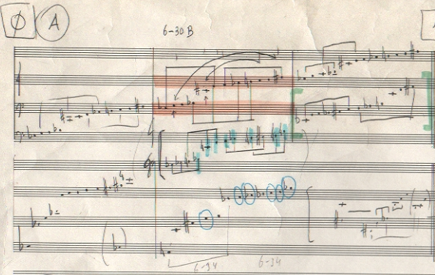 Ø A
6-30B
6-34 6-34